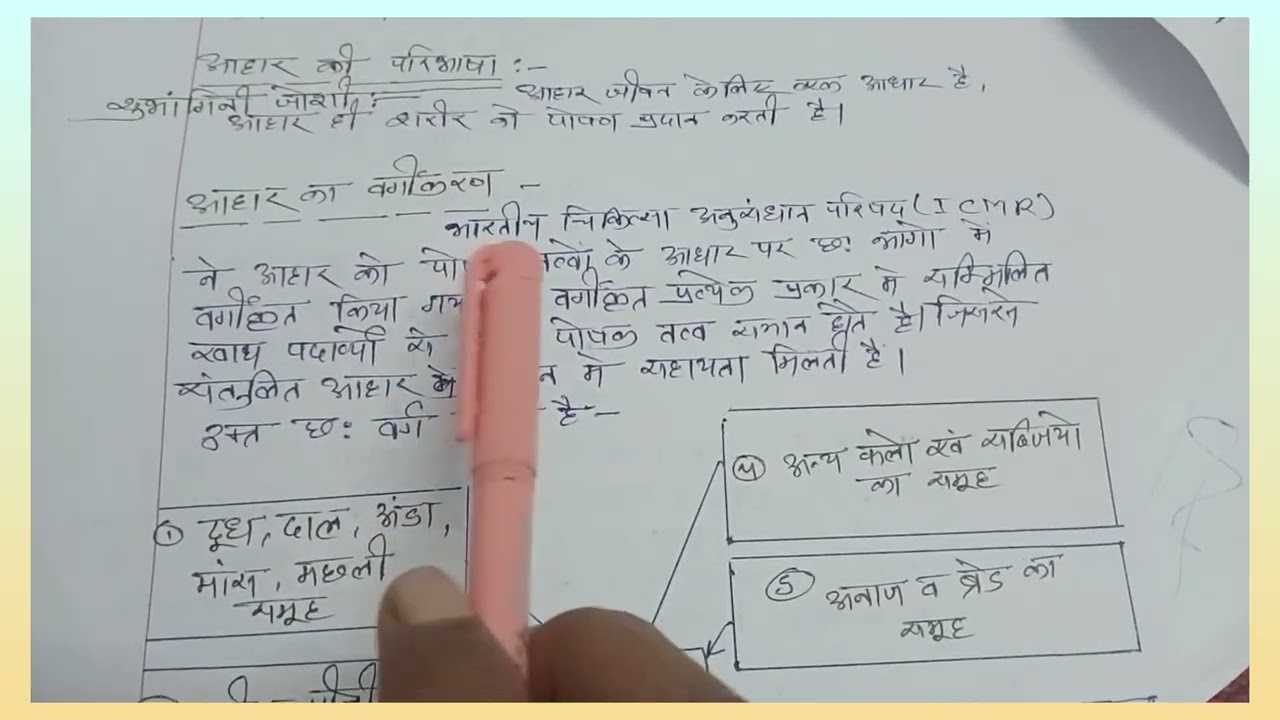 आहार की परिभाषा :-
शुभांगिनी जोशी :- आहार जीवन के लिए एक आधार है,
आहार ही शरीर को पोषण प्रदान करती है।
आहार का वर्गीकरण -
भारतीय चिकित्सा अनुसंधान परिषद (ICMR)
ने आहार को तत्वों के आधार पर छः भागो में
वर्गीकृत किया वर्गीकृत प्रत्येक प्रकार मे सम्मिलित
खाद्य पदार्थो से पोषक तत्व समान होते है। जिससे
संतुलित आहार मे सहायता मिलती है।
उक्त छः वर्ग है-
① दूध, दाल, अंडा,
मांस, मछली
समूह
④ अन्य फलो एवं सब्जियो
का समूह
⑤ अनाज व ब्रेड का
समूह